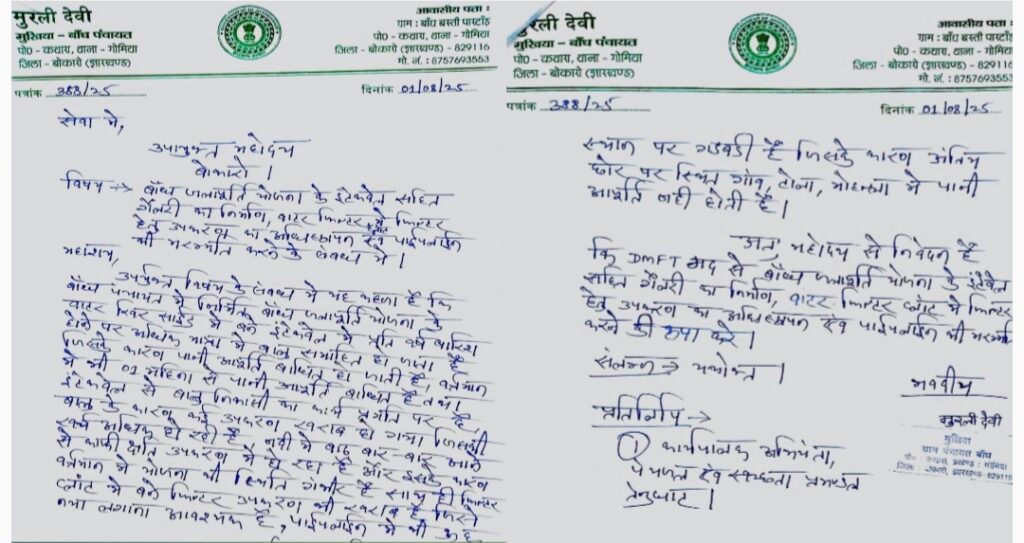 मुरली देवी
मुखिया – बाँध पंचायत
पो० - कथारा, थाना - गोमिया
जिला - बोकारो (झारखण्ड)
आवासीय पता :
ग्राम : बाँध बस्ती पारटाँड़
पो० - कथारा, थाना - गोमिया
जिला - बोकारो (झारखण्ड) - 829116
मो. नं. : 8757693553
पत्रांक 388/25
दिनांक 01/08/25
सेवा में,
उपायुक्त महोदय
बोकारो ।
विषय -> बाँध जलापूर्ति योजना के इंटेकवेल सहित
गैलरी का निर्माण, वाटर फिल्टर में फिल्टर
हेतु उपकरण का अधिष्ठापन एवं पाईपलाईन
की मरम्मति करने के संबंध में ।
महाशय,
उपर्युक्त विषय के संबंध में यह कहना है कि
बाँध पंचायत में निर्मित बाँध जलापूर्ति योजना के
वाटर रिवर साईड में बने इंटेकवेल में प्रति वर्ष बारिश
होने पर अधिक मात्रा में बालु समाहित हो जाता है
जिसके कारण पानी आपूर्ति बाधित हो जाती है, वर्तमान
में भी 01 महिना से पानी आपूर्ति बाधित है तथा
इंटेकवेल से बालु निकासी का कार्य प्रगति पर है,
बालु के कारण कई उपकरण खराब हो गया जिसकी
खर्च अधिक हो रही है नदी में बाढ़ बार बार आने
से काफी क्षति उपकरण में हो रहा है और इसके कारण
वर्तमान में योजना की स्थिति गंभीर है साथ ही फिल्टर
प्लांट में बने फिल्टर उपकरण भी खराब है जिसे
नया लगाना आवश्यक है, पाईपलाईन में भी कुछ
मुरली देवी
मुखिया – बाँध पंचायत
पो० - कथारा, थाना - गोमिया
जिला - बोकारो (झारखण्ड)
आवासीय पता :
ग्राम : बाँध बस्ती पारटाँड़
पो० - कथारा, थाना - गोमिया
जिला - बोकारो (झारखण्ड) - 829116
मो. नं. : 8757693553
पत्रांक 388/25
दिनांक 01/08/25
स्थान पर गडबडी है जिसके कारण अंतिम
छोर पर स्थित गांव, टोला, मोहल्ला में पानी
आपूर्ति नही होती है ।
अतः महोदय से निवेदन है
कि DMFT मद से बाँध जलापूर्ति योजना के इंटेकवेल
सहित गैलरी का निर्माण, वाटर फिल्टर प्लांट में फिल्टर
हेतु उपकरण का अधिष्ठापन एवं पाईपलाईन की मरम्मति
करने की कृपा करे ।
संलग्न -> यथोक्त ।
भवदीय
मुरली देवी
मुखिया
ग्राम पंचायत बाँध
पो० - कथारा, प्रखण्ड : गोमिया
जिला - बोकारो, झारखण्ड-829116
प्रतिलिपि ->
① कार्यपालक अभियंता,
पेयजल एवं स्वच्छता प्रमण्डल
तेनुघाट ।